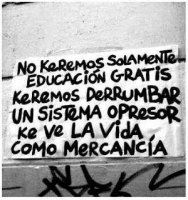 NO KEREMOS SOLAMENTE
EDUCACIÓN GRATIS
KEREMOS DERRUMBAR
UN SISTEMA OPRESOR
KE VE LA VIDA
COMO MERCANCÍA